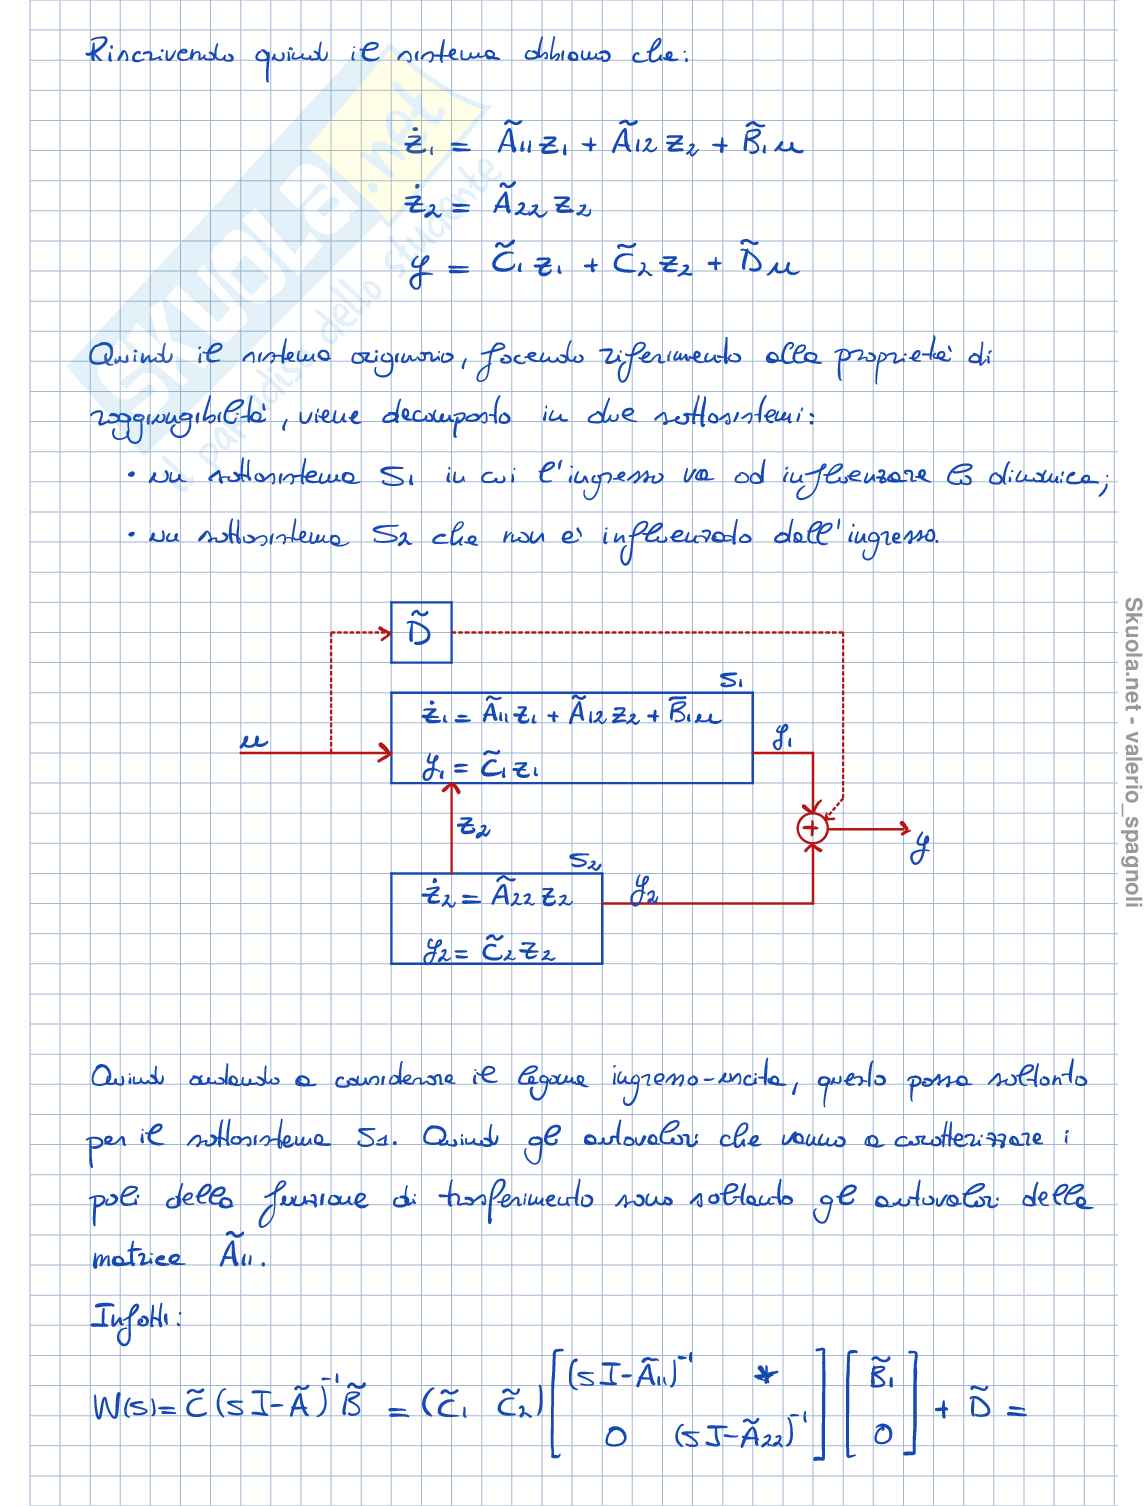 Riscrivendo quindi il sistema abbiamo che:
ż₁ = Ã₁₁ z₁ + Ã₁₂ z₂ + B̃₁ u
ż₂ = Ã₂₂ z₂
y = C̃₁ z₁ + C̃₂ z₂ + D̃ u
Quindi il sistema originario, facendo riferimento alla proprietà di
raggiungibilità, viene decomposto in due sottosistemi:
• un sottosistema S₁ in cui l'ingresso va ad influenzare la dinamica;
• un sottosistema S₂ che non è influenzato dall'ingresso.
D̃
S₁
ż₁ = Ã₁₁ z₁ + Ã₁₂ z₂ + B̅₁ u
u
y₁
y₁ = C̃₁ z₁
z₂
+
y
S₂
ż₂ = Ã₂₂ z₂
y₂
y₂ = C̃₂ z₂
Quindi andando a considerare il legame ingresso-uscita, questo passa soltanto
per il sottosistema S₁. Quindi gli autovalori che vanno a caratterizzare i
poli della funzione di trasferimento sono soltanto gli autovalori della
matrice Ã₁₁.
Infatti:
W(s) = C̃ (sI-Ã)⁻¹ B̃ = (C̃₁ C̃₂) [(sI-Ã₁₁)⁻¹ * ; 0 (sI-Ã₂₂)⁻¹] [B̃₁ ; 0] + D̃ =
SKUOLA.net
il paradiso dello studente
Skuola.net - valerio_spagnoli